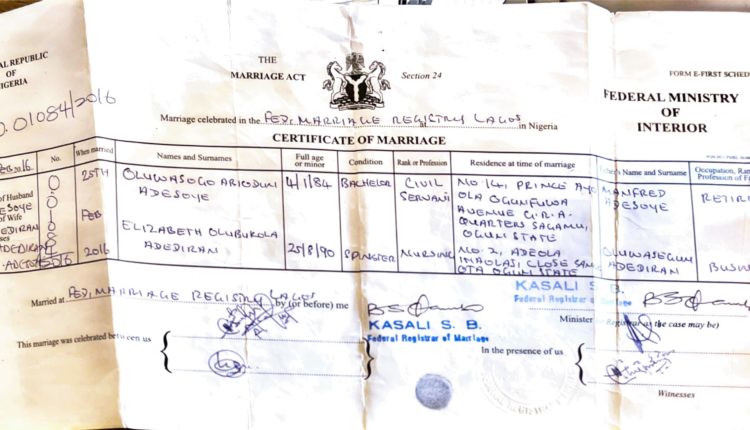 AL REPUBLIC
OF
IGERIA
THE
MARRIAGE ACT
Section 24
FORM E-FIRST SCHED
O. 01084/2016
FEDERAL MINISTRY
OF
INTERIOR
Marriage celebrated in the FED, MARRIAGE REGISTRY LAGOS in Nigeria
CERTIFICATE OF MARRIAGE
No.
When married
Names and Surnames
Full age or minor
Condition
Rank or Profession
Residence at time of marriage
her's Name and Surname
Occupation, Ran
Profession of F
25TH
FEB
2016
OLUWASOGO ABIODUN
ADESOYE
4/1/84
BACHELOR
CIVIL
SERVANT
NO 14, PRINCE
OLA OGUNFUWA
AVENUE G.R.A.
QUARTERS SAGAMU,
OGUN STATE
MANFRED
ADESOYE
RETIR
of Husband
ESOYE
of Wife
EDIRAN
ELIZABETH OLUBUKOLA
ADEDIRAN
25/8/90
SPINSTER
NURSING
NO 2, ADEOLA
CLOSE
OTA OGUN STATE
OLUWASEGUN
ADEDIRAN
BUSI
Married at FED, MARRIAGE REGISTRY LAGOS by (or before) me
KASALI S. B.
Federal Registrar of Marriage
KASALI S. B.
Federal Registrar of Marriage
Minister
Registrar (as the case may be)
This marriage was celebrated between us
In the presence of us
Witnesses